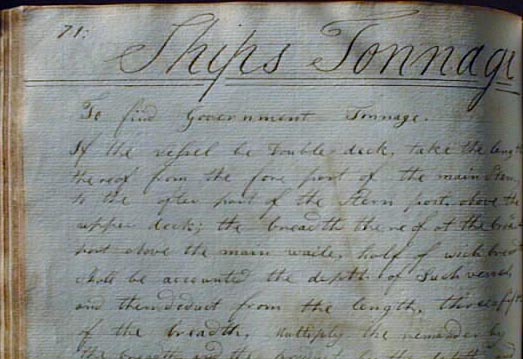 71:
Ships Tonnage
To find Government Tonnage.
If the vessel be Double deck, take the leng
thereof from the fore part of the main Stem
to the after part of the Stern port, above the
upper deck; the breadth thereof at the broa
part above the main wails, half of wich bread
shall be accounted the depth of Such vessel,
and then deduct from the length, three fif
of the breadth, multiply the remainder by
the breadth and the